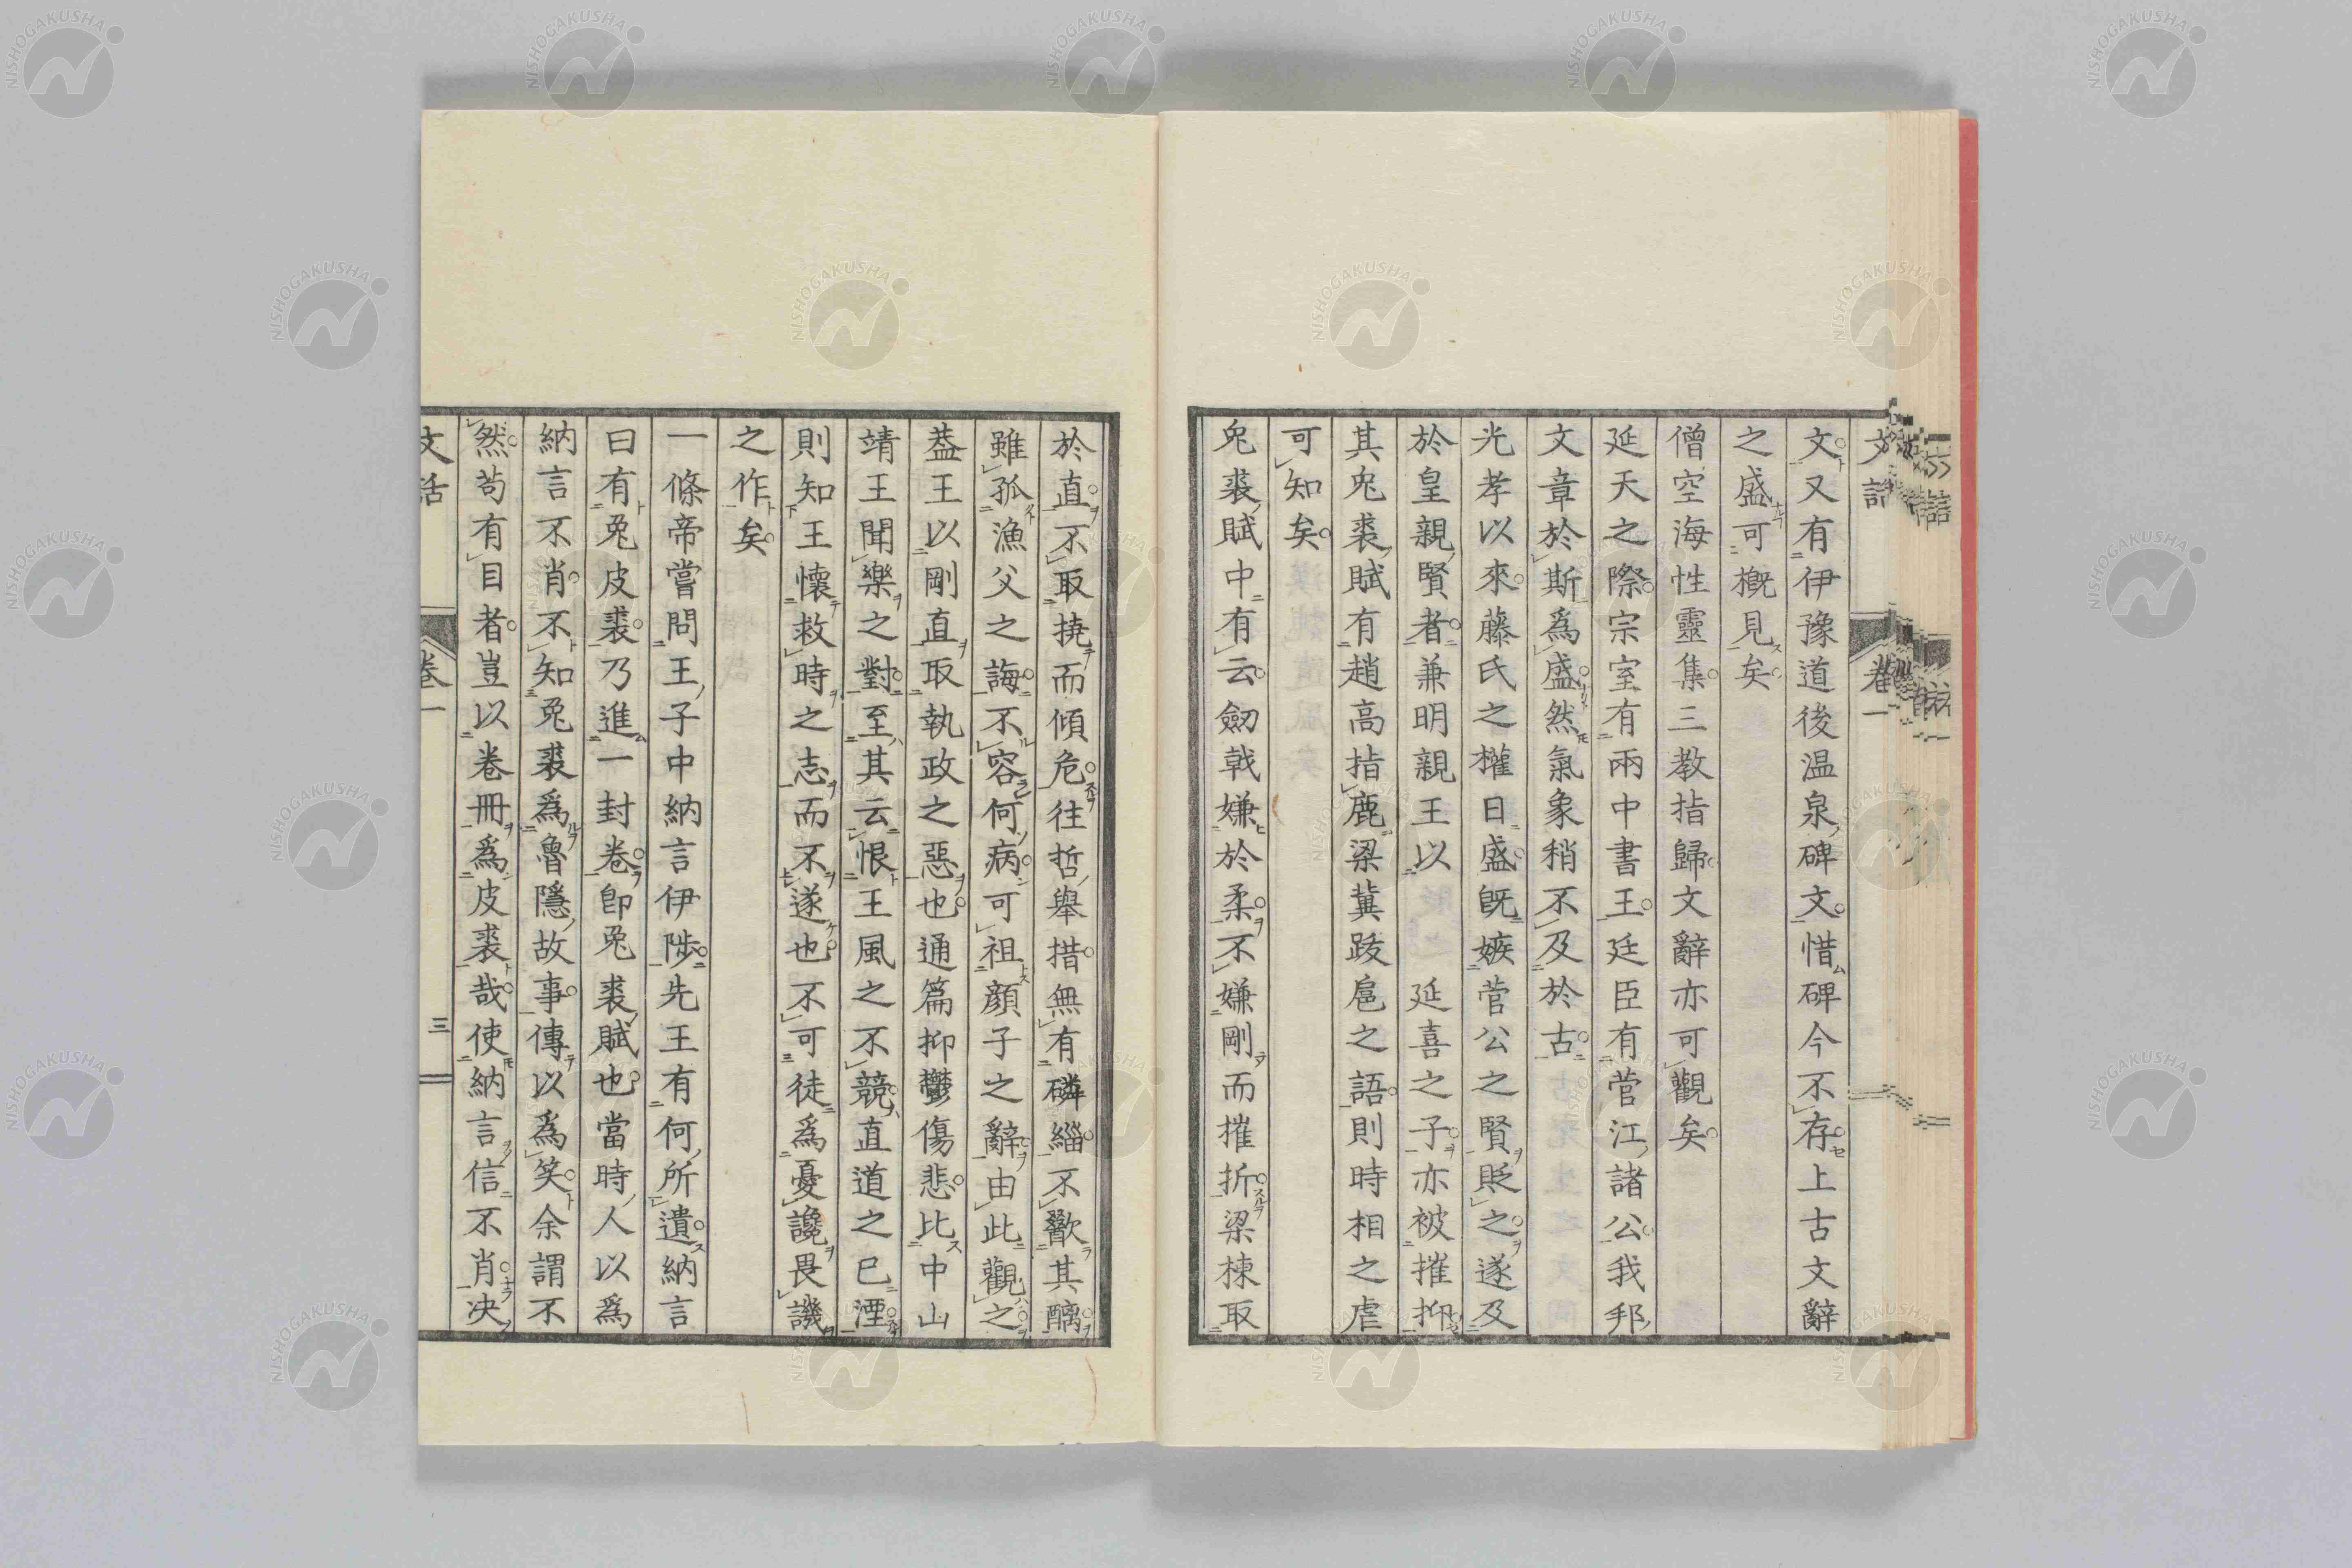 文又有伊豫道後温泉碑文惜碑今不存上古文辭
之盛可概見矣
僧空海性靈集三教指歸文辭亦可觀矣
延天之際宗室有兩中書王廷臣有菅江諸公我邦
文章於斯爲盛然氣象稍不及於古
光孝以來藤氏之權日盛旣嫉菅公之賢貶之遂及
於皇親賢者兼明親王以 延喜之子亦被摧抑
其兔裘賦有趙高指鹿梁冀跋扈之語則時相之虐
可知矣
兔裘賦中有云劒戟嫌於柔不嫌剛而摧折梁棟取
於直不取撓而傾危往哲舉措無有磷緇不歠其醨
雖孤漁父之誨不容何病可祖顏子之辭由此觀之
葢王以剛直取執政之惡也通篇抑鬱傷悲比中山
靖王聞樂之對至其云恨王風之不競直道之已湮
則知王懷救時之志而不遂也不可徒爲憂讒畏譏
之作矣
一條帝嘗問王子中納言伊陟先王有何所遺納言
曰有兔皮裘乃進一封卷卽兔裘賦也當時人以爲
納言不肖不知兔裘爲魯隱故事傳以爲笑余謂不
然苟有目者豈以卷冊爲皮裘哉使納言信不肖决
文話 卷一 三